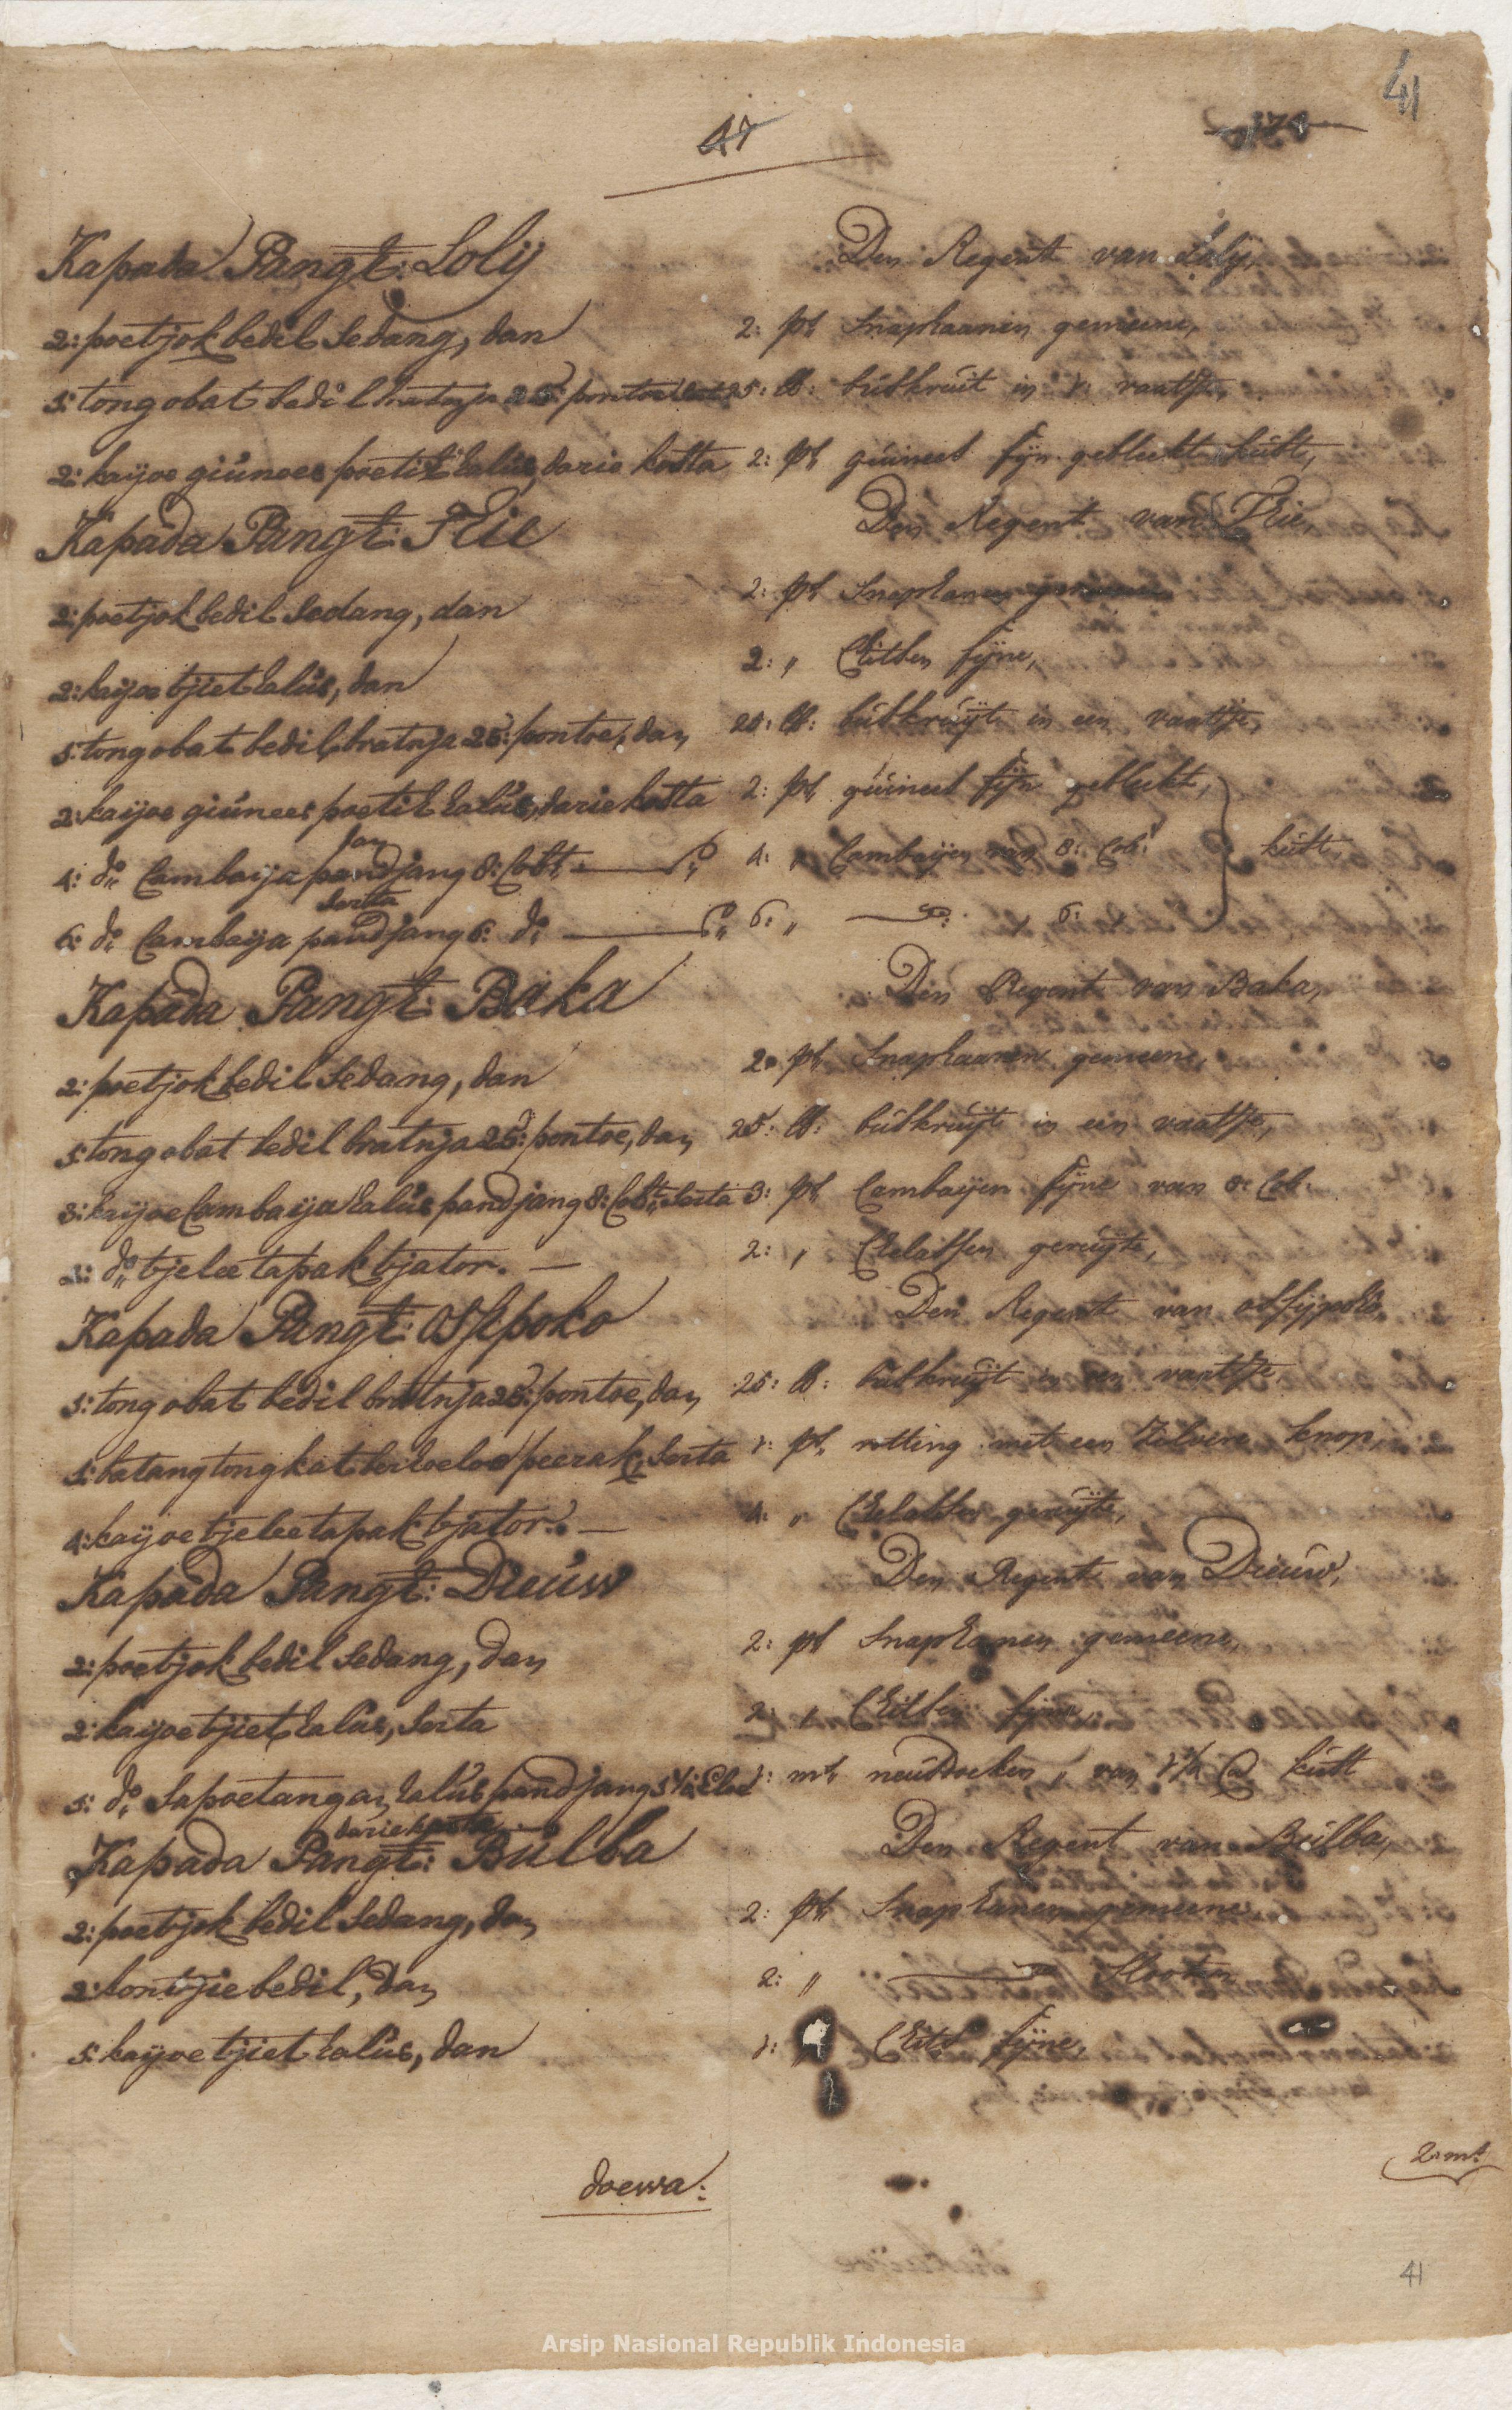 41
47
Kapada Pangt: Lolij
2: poetjok bedil Sedang, dan
1: tong obat bedil bratnja 25: pontoe
2: kaijoe giúnees poeti halús, darie kosta
Kapada Pangt: Thie
2: poetjok bedil Sedang, dan
2: kaijoe tjiet halús, dan
1: tong obat bedil, bratnja 25: pontoe, dan
2: kaijoe giúnees poeti halús, darie kosta
dan
4: do Cambaija pandjang 8: Cobt
Serta
6: do Cambaija pandjang 6: do
Kapada Pangt: Baka
2: poetjok bedil Sedang, dan
1: tong obat bedil bratnja 25: pontoe, dan
3: kaijoe Cambaija halús pandjang 8: Cobt Serta
2: do tjelee tapak tjator. —
Kapada Pangt: Ossipoko
1: tong obat bedil bratnja 25: pontoe, dan
1: batang tongkat berboeloe peerak, Serta
4: kaijoe tjelee tapak tjator. —
Kapada Pangt: Dieúw
2: poetjok bedil Sedang, dan
2: kaijoe tjiet halús, Serta
1: do Sapoetangan halús pandjang 1½ Eloe
darie kosta
Kapada Pangt: Búlba
2: poetjok bedil Sedang, dan
2: kontjie bedil, dan
1: kaijoe tjiet halús, dan
doewa:
Den Regent van Lolij,
2: ps Snaphaanen gemeene,
25: lb: búskruit in 1: vaatje,
2: ps gúinees fijn gebleekt kúst,
Den Regent van Thie,
2: ps Snaphanen gemeene
2: " Chitsen fijne,
25: lb: búskruijt in een vaatje,
2: ps gúinees fijn gebleekt,
4: " Cambaijen van 8: Cob: kúst,
6: " — do. 6:
Den Regent van Baka,
2: ps Snaphaanen gemeene,
25: lb: búskruijt in een vaatje,
3: ps Cambaijen fijne van 8: Cob:
2: " Chelassen geruijte,
Den Regent van Ossipoko
25: lb: búskruijt in een vaatje
1: ps rotting met een Zilvere knop,
4: " Chelassen geruijte,
Den Regent van Dieúw,
2: ps Snaphanen gemeene,
2: " Chitsen fijne,
1: neusdoeken, van 1½ kúst
Den Regent van Búlba,
2: ps Snaphanen gemeene,
2: " — do Slooten
1: Chits fijne,
2: mt
41
Arsip Nasional Republik Indonesia